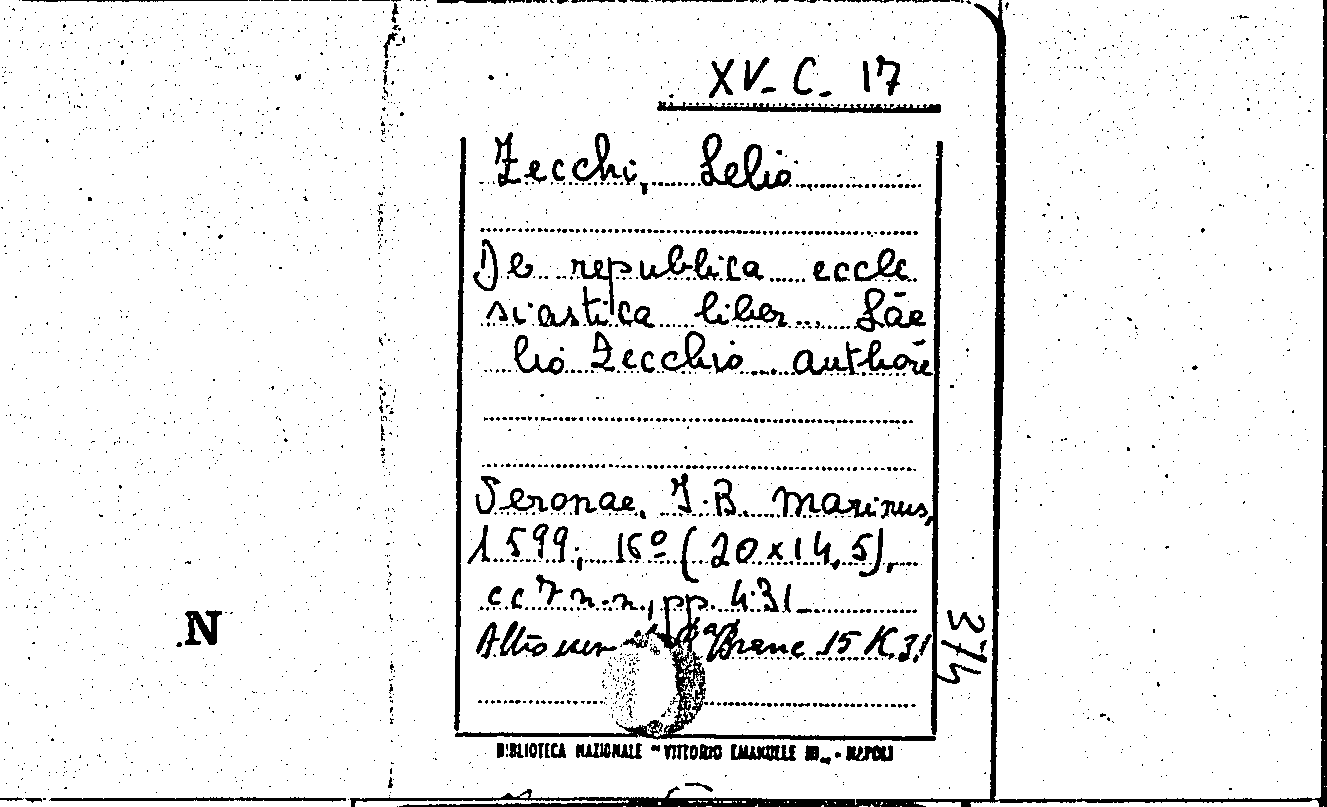 XV- C- 17
Zecchi, Lelio
De republica eccle
siastica liber... Lãe
lio Zecchio... authore
Veronae, I.B. Marinus,
1599; 16º (20x14,5),
cc 7 n.n., pp. 431
Altro esem Branc 15 K.31
374
N
BIBLIOTECA NAZIONALE "VITTORIO EMANUELE III" - NAPOLI